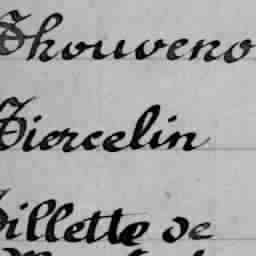 Thouveno
Tiercelin
Tillette de